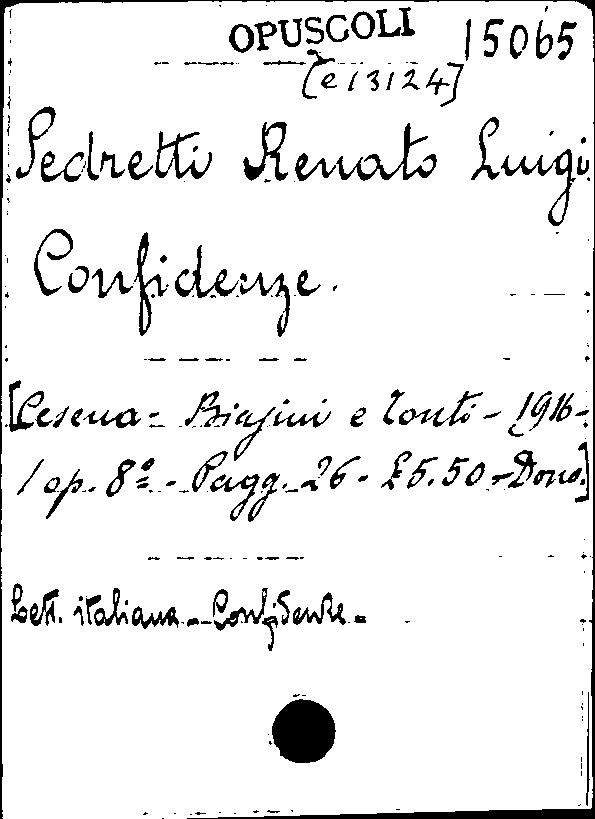 OPUSCOLI 15065
[e 13124]
Pedretti Renato Luigi
Confidenze.
[Cesena - Biasini e Tonti - 1916 -
1 op. 8° - Pagg. 26 - £ 5.50 - Dono.]
Lett. italiana - Confidenze -